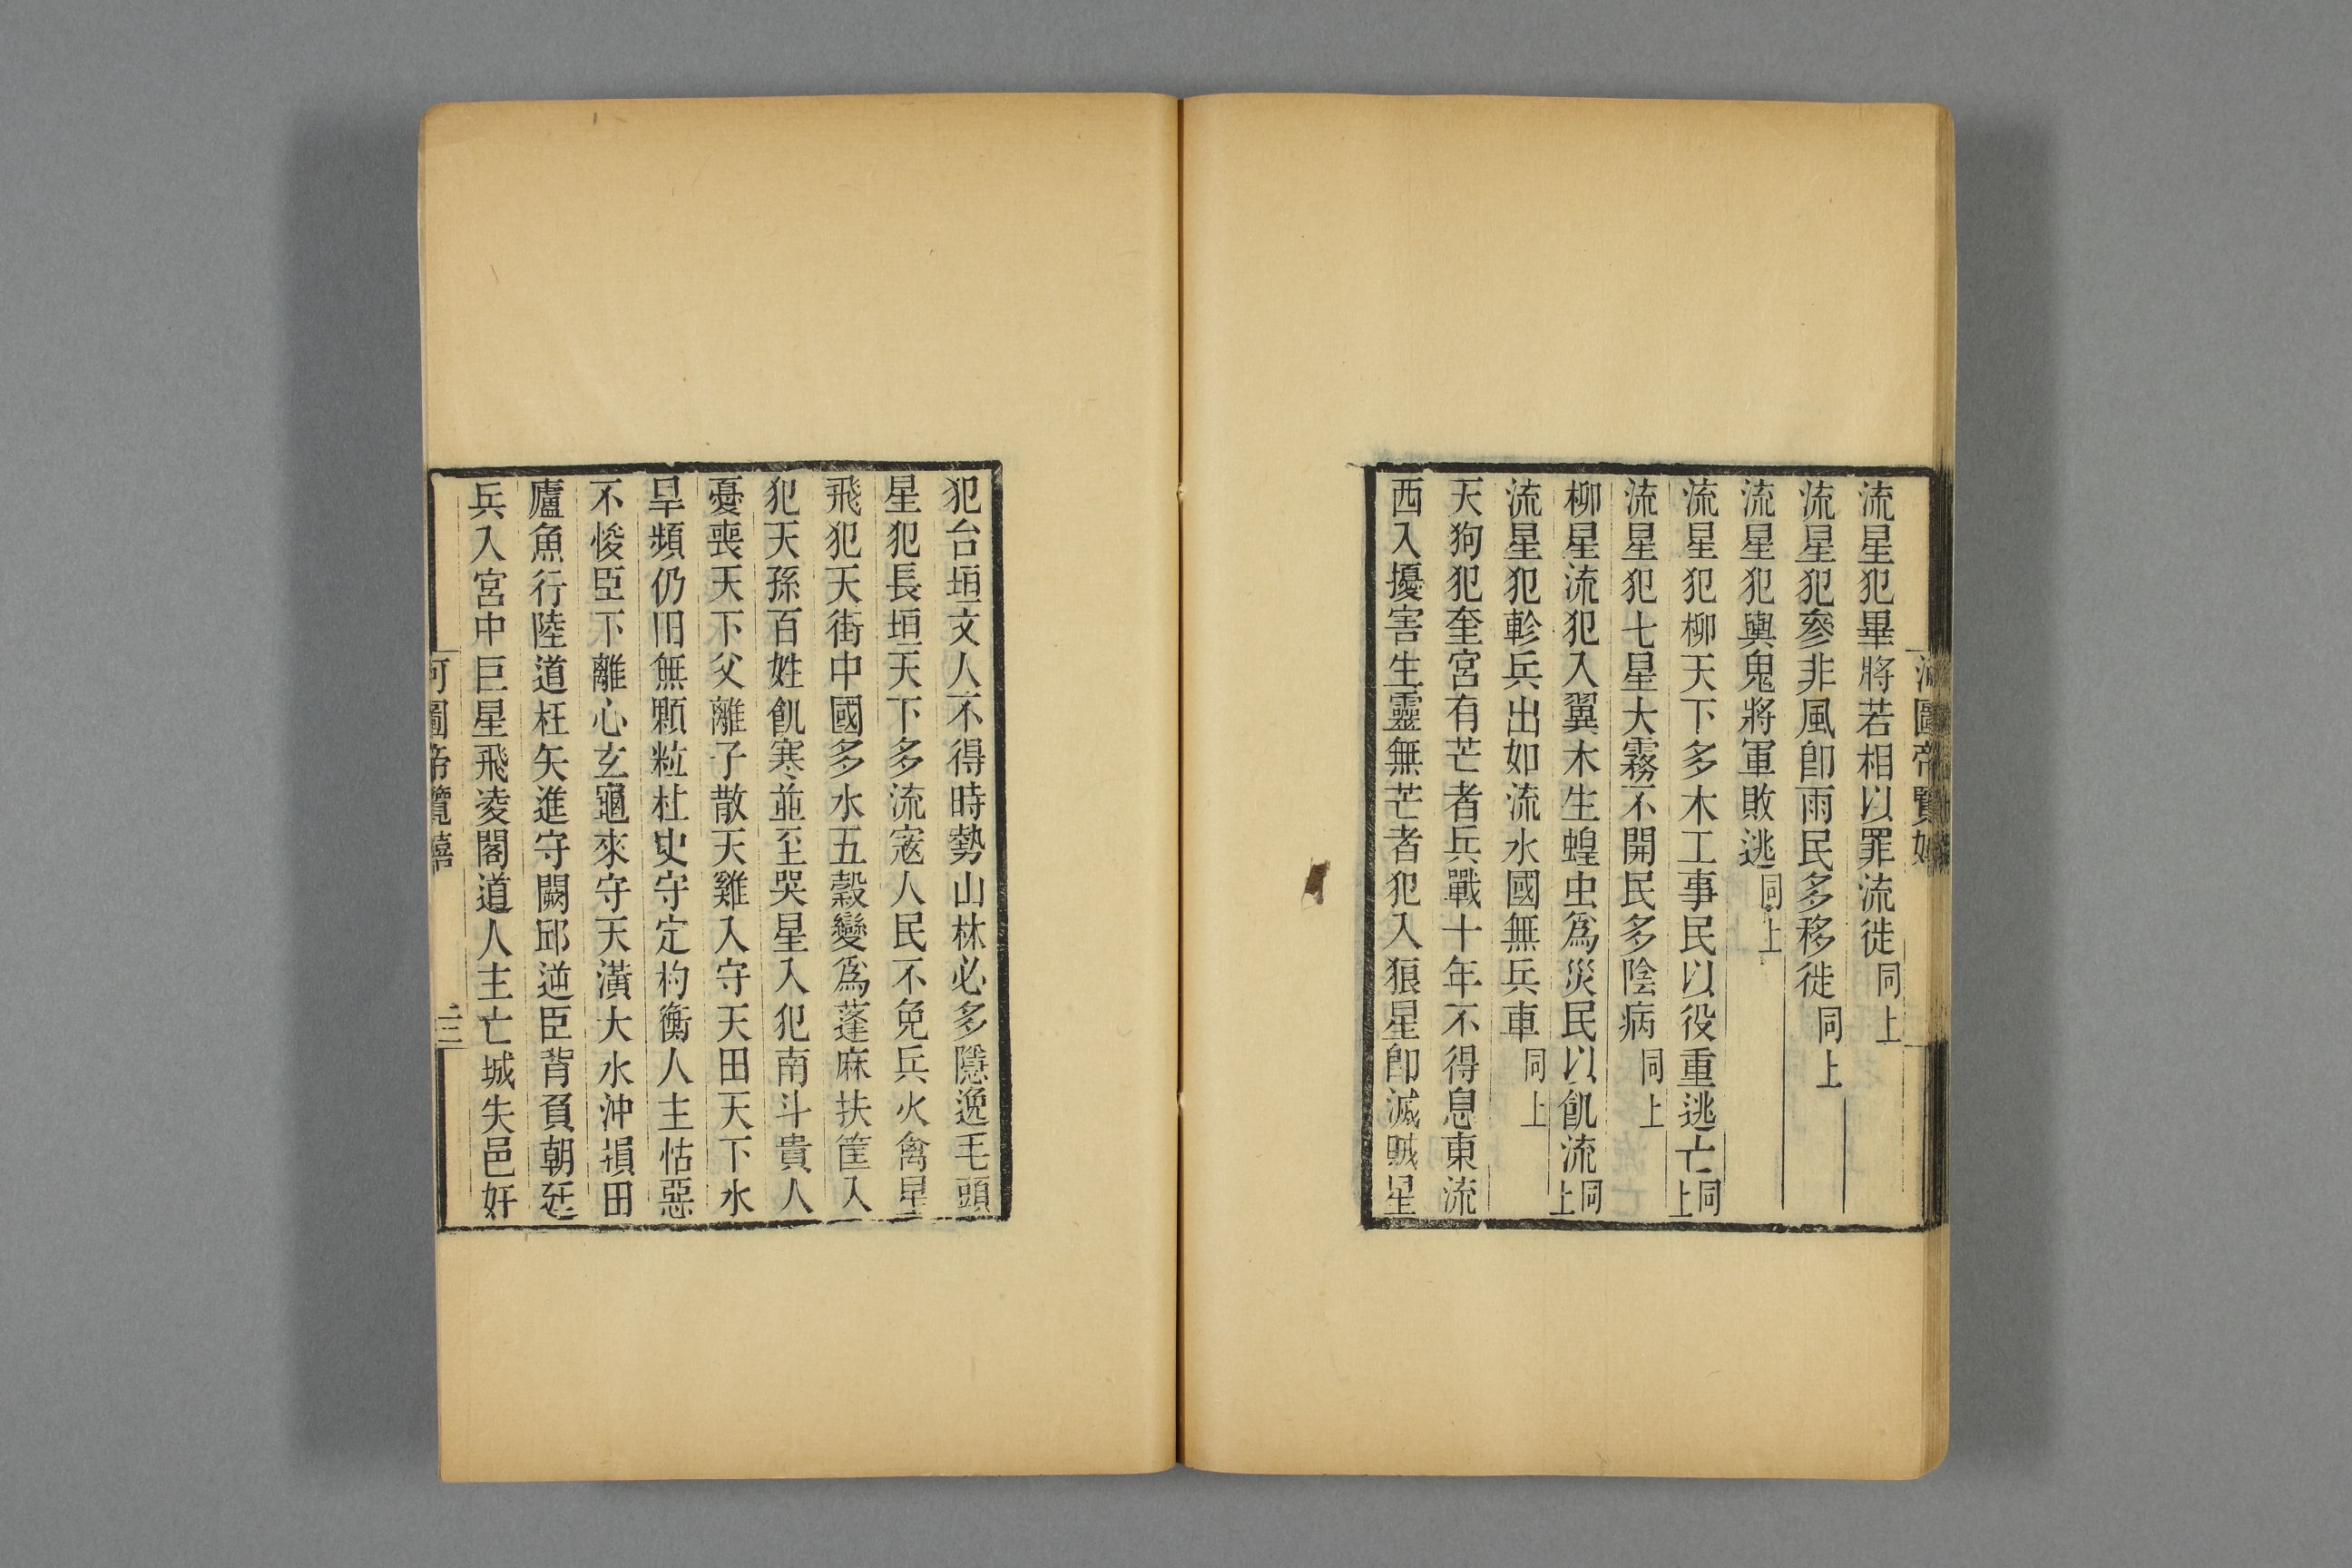 流星犯畢將若相以罪流徙同上
流星犯參非風卽雨民多移徙同上
流星犯輿鬼將軍敗逃同上
流星犯柳天下多木工事民以役重逃亡同上
流星犯七星大霧不開民多陰病同上
柳星流犯入翼木生蝗虫為災民以飢流同上
流星犯軫兵出如流水國無兵車同上
天狗犯奎宮有芒者兵戰十年不得息東流
西入擾害生靈無芒者犯入狼星卽滅賊星
犯台垣文人不得時勢山林必多隱逸毛頭
星犯長垣天下多流寇人民不免兵火禽星
飛犯天街中國多水五穀變為蓬麻扶筐入
犯天孫百姓飢寒並至哭星入犯南斗貴人
憂喪天下父離子散天雞入守天田天下水
旱頻仍旧無顆粒杜史守定杓衡人主怙惡
不悛臣下離心玄龜來守天潢大水沖損田
廬魚行陸道枉矢進守闕邱逆臣背負朝廷
兵入宮中巨星飛凌閣道人主亡城失邑奸
河圖帝覽嬉